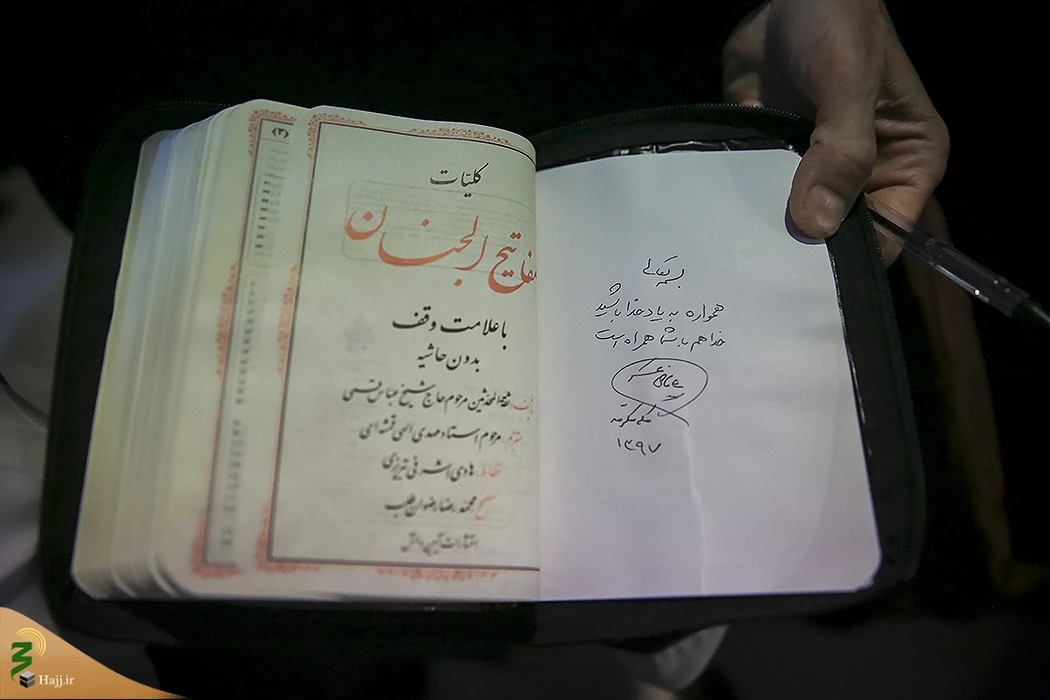 بسمه تعالی
همواره به یاد خدا باشید
خدا هم با شما همراه است
مکه مکرمه
۱۳۹۷
کلیّات
مفاتیح الجنان
با علامت وقف
بدون حاشیه
ثقة المحدثین مرحوم حاج شیخ عباس قمی
مترجم: مرحوم استاد مهدی الهی قمشه‌ای
خطاط: هادی اشرفی تبریزی
مصحح: محمدرضا رضوان طلب
انتشارات آیین دانش
(۲)
Hajj.ir